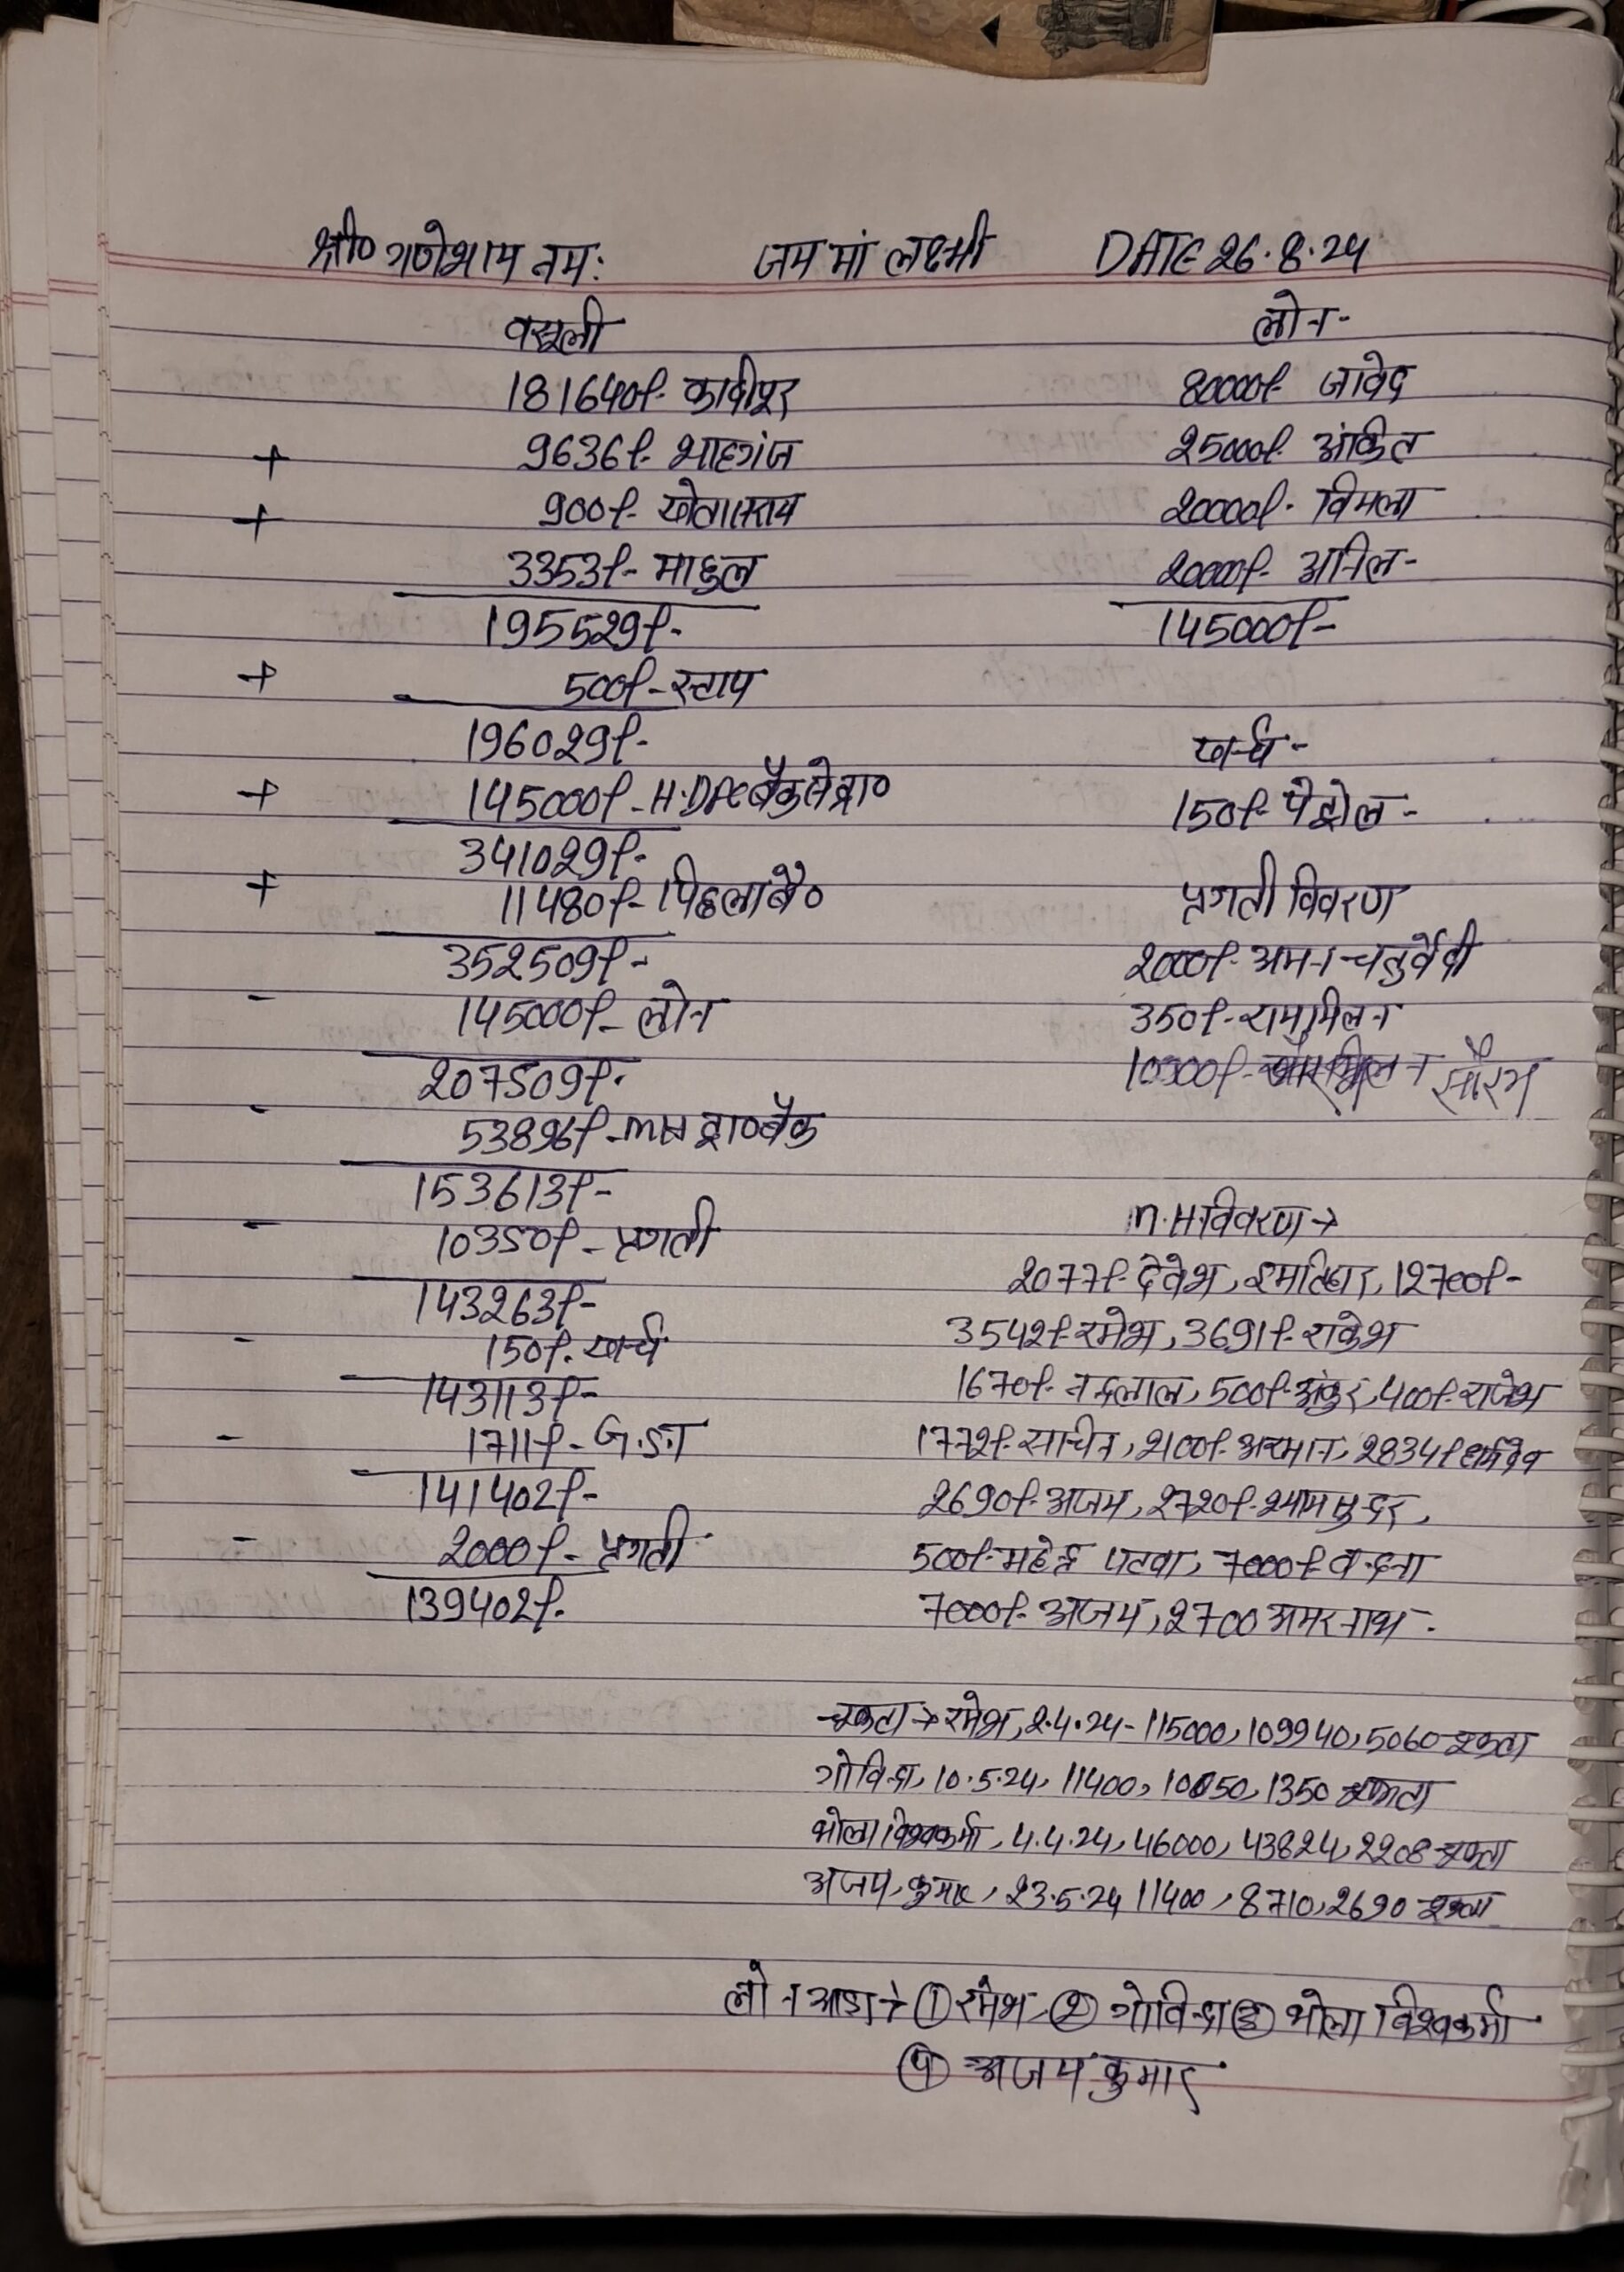 श्री० गणेशाय नमः जय मां लक्ष्मी DATE 26.8.24
वसूली
181640/- कादीपुर
+ 9636/- शाहगंज
+ 900/- खेतासराय
3353/- माहुल
195529/-
+ 500/- स्टाप
196029/-
+ 145000/- H.DFC बैंक से प्रा०
341029/-
+ 11480/- पिछला बै०
352509/-
- 145000/- लोन
207509/-
- 53896/- MH द्वा० बैंक
153613/-
- 10350/- प्रगती
143263/-
- 150/- खर्च
143113/-
- 1711/- G.S.T
141402/-
- 2000/- प्रगती
139402/-
लोन-
80000/- जावेद
25000/- अंकित
20000/- विमला
20000/- अनिल-
145000/-
खर्च-
150/- पेट्रोल-
प्रगती विवरण
2000/- अमन चतुर्वेदी
350/- राममिलन
10000/- सौरभ
M.H विवरण →
2077/- देवेश, इमतियार, 12700/-
3542/- रमेश, 3691/- राकेश
1670/- नन्दलाल, 500/- अंकुर, 400/- राजेश
1772/- सचिन, 2100/- अरमान, 2834/- धर्मदेव
2690/- अजय, 2720/- श्यामसुन्दर,
500/- महेन्द्र पटवा, 7000/- वन्दना
7000/- अजय, 2700 अमरनाथ -
चुकता → रमेश, 2.4.24 - 115000, 109940, 5060 चुकता
गोविन्द, 10.5.24, 11400, 10050, 1350 चुकता
भोला विश्वकर्मा, 4.4.24, 46000, 43824, 2208 चुकता
अजय कुमार, 23.5.24 11400, 8710, 2690 चुकता
लोन → ① रमेश ② गोविन्द ③ भोला विश्वकर्मा
④ अजय कुमार